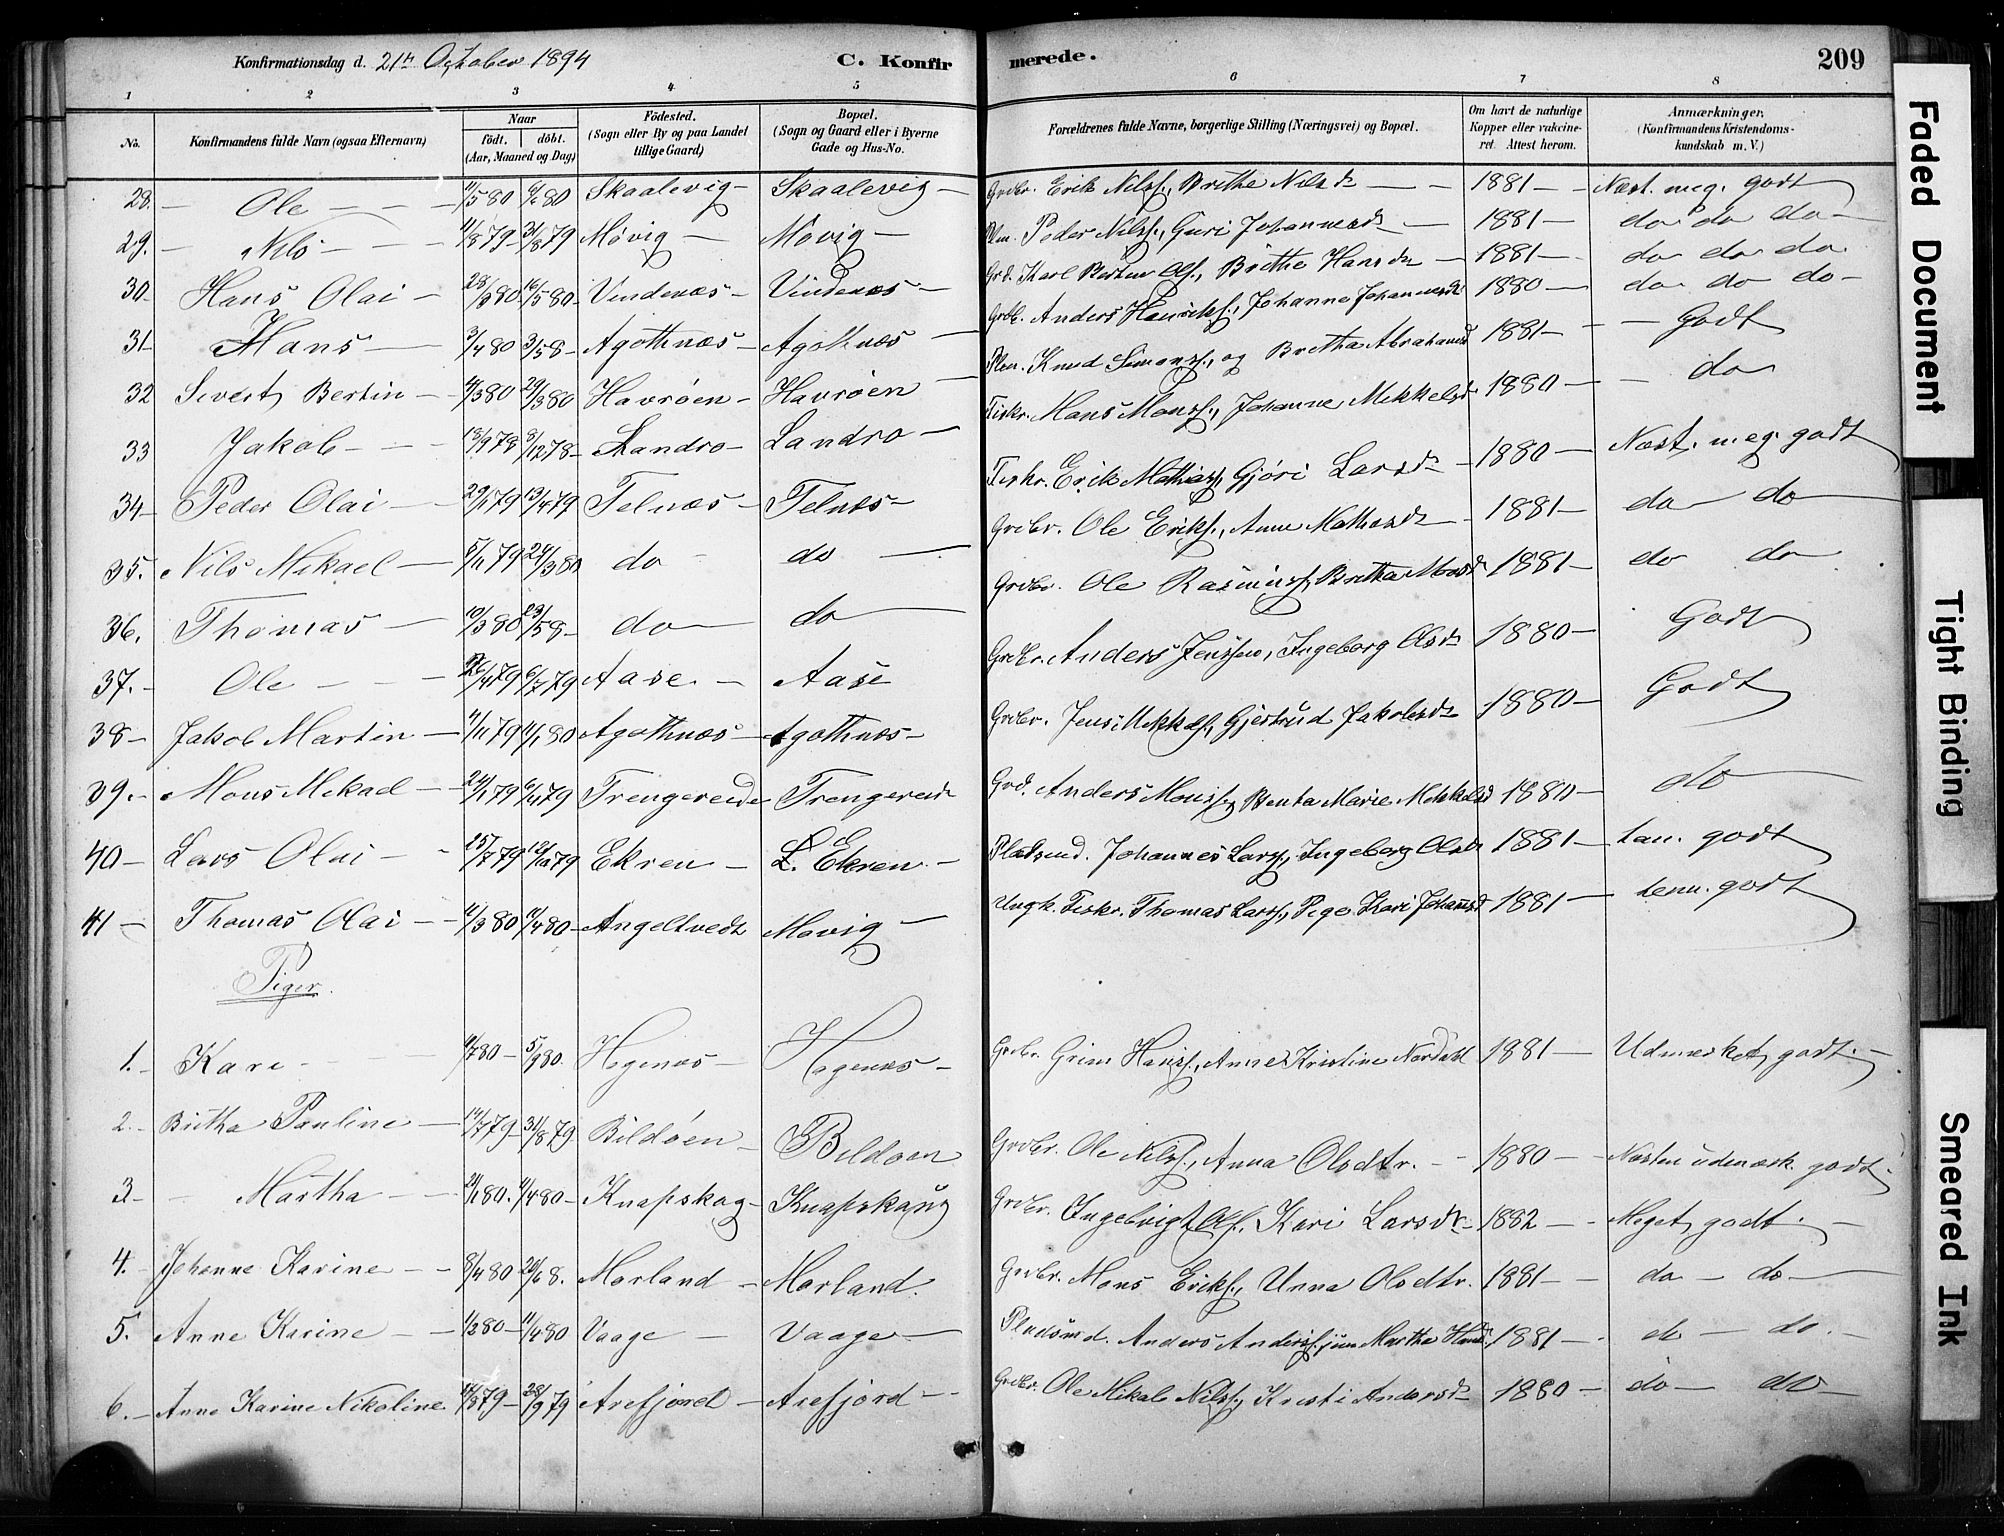 Konfirmationsdag d. 21de October 1894 C. Konfirmerede. 209
1 2 3 4 5 6 7 8
No. Konfirmandens fulde Navn (ogsaa Efternavn) Naar født. døbt. (Aar, Maaned og Dag) Födested. (Sogn eller By og paa Landet tillige Gaard) Bopæl. (Sogn og Gaard eller i Byerne Gade og Hus-No. Forældrenes fulde Navne, borgerlige Stilling (Næringsvei) og Bopæl. Om havt de naturlige Kopper eller vakcineret. Attest herom. Anmærkninger. (Konfirmandens Kristendomskundskab m. V.)
28. Ole 11/5 80 6/6 80 Skaalevig Skaalevig Grdbr. Erik Nilss., Brithe Nilsd 1881 Næst. meg. godt
29. Nils 11/8 79 31/8 79 Møvig Møvig Plm. Peder Nilss., Guri Johannesd 1881 do do do
30 Hans Olai 28/3 80 16/5 80 Vindenæs Vindenæs Grd. Karl Bertin Ols., Brithe Hansd 1881 do do do
31 Hans 3/4 80 3/5 8 Agothnæs Agothnæs Grbr. Anders Henriks., Johanne Johannesd 1880 do do do
32 Sivert Bertin 4/3 80 29/3 80 Havrøen Havrøen Plm. Knud Simons., og Bretha Abrahamsd 1881 Godt
33 Jakob 18/9 78 8/12 78 Landro Landro Fiskr. Mons Monss., Johanne Mikkelsd 1880 do
34 Peder Olai 29/1 79 13/4 79 Telnæs Telnæs Fiskr. Erik Mathias., Gjøri Larsd 1880 Næst. meg. godt
35. Nils Mikael 5/11 79 29/3 80 do do Grdbr. Ole Eriks., Anne Mathiasd 1881 do do
36. Thomas 10/3 80 23/5 8 do do Grdbr. Ole Rasmuss., Bretha Monsd 1881 do do
37. Ole 26/4 79 6/7 79 Aase Aase Grdbr. Anders Jenssen, Ingeborg Olsd 1880 Godt
38 Jakob Martin 4/11 79 1/1 80 Agothnæs Agothnæs Grdbr. Jens Mikkels., Gjertrud Jakobsd 1880 Godt
39. Mons Mikael 24/1 79 6/4 79 Trengereide Trengereide Grd. Anders Monss., Benta Marie Mikkelsd 1880 do
40 Lars Olai 25/7 79 12/10 79 Ekren L. Ekren Pladsmd. Johannes Larss., Ingeborg Olsd 1881 tem. godt
41 Thomas Olai 4/3 80 11/4 80 Angeltvedt Møvig Ungk. Fiskr. Thomas Larss., Pige Kari Johansd 1881 tem. godt
Piger.
1. Kari 11/7 80 5/9 80. Hegenæs Hegenæs Grdbr. Grim Hanss., Anne Kristine Nordahl 1881 Udmerket godt.
2. Britha Pauline 14/7 79 31/8 79 Bildøen Bildøen Grdbr. Ole Nilss., Anna Olsdtr. 1880 Næsten udmærk. godt
3. Martha 21/1 80. 4/4 80 Knapskog Knapskaug Grdbr. Ingebrigt Ols., Kari Larsd 1882 Meget godt.
4. Johanne Karine 8/4 80 20/6 8. Morland Morland. Grdbr. Mons Eriks., Unna Olsdtr. 1881 do do
5. Anne Karine 1/2 80 11/4 80 Vaage Vaage Pladsmd. Anders Anderss. jun Martha Hansd. 1881 do do.
6. Anne Karine Nikoline 11/8 79 28/9 79 Arefjord Arefjord Grdbr. Ole Mikal Nilss., Kristi Andersd 1880 do do
Faded Document
Tight Binding
Smeared Ink